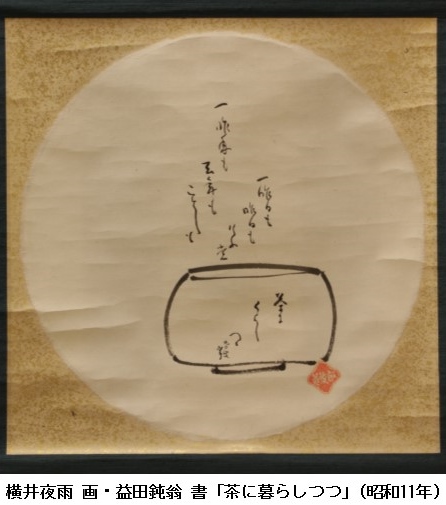 一昨日も
昨日も
けふも
一昨年も
去年も
ことしも
茶に
くらし
つゝ
横井夜雨 画・益田鈍翁 書「茶に暮らしつつ」(昭和11年)